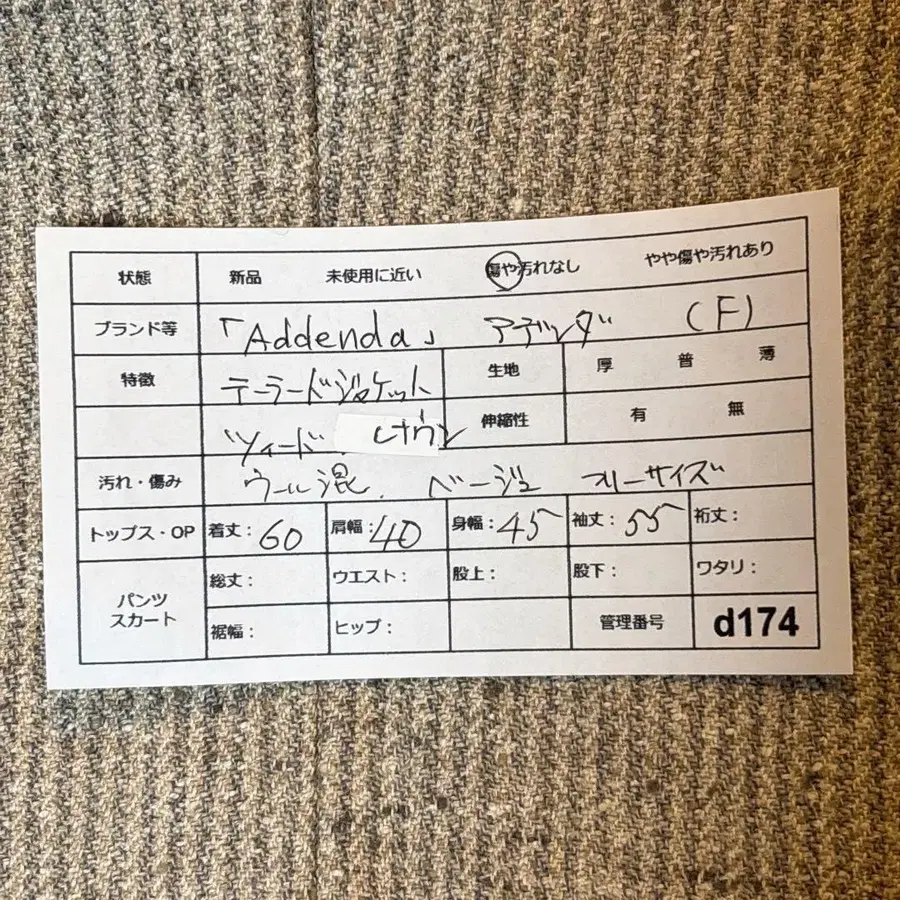 状態 新品 未使用に近い 傷や汚れなし やや傷や汚れあり
ブランド等 「Addenda」 アデンダ (F)
特徴 テーラードジャケット 生地 厚 普 薄
ツィード 伸縮性 有 無
汚れ・傷み ウール混. ベージュ フリーサイズ
トップス・OP 着丈：60 肩幅：40 身幅：45 袖丈：55 裄丈：
パンツ スカート 総丈： ウエスト： 股上： 股下： ワタリ：
裾幅： ヒップ： 管理番号 d174